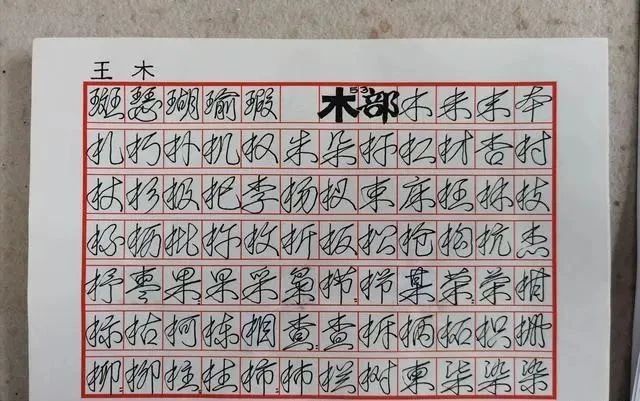 王 木
斑 瑟 瑚 瑜 瑕 木部 53 木 未 末 本
札 朽 朴 机 权 朱 朵 杆 杠 材 杏 村
杖 杉 极 杞 李 杨 杈 束 床 枉 林 枝
杯 枢 枚 析 板 松 枪 构 杭 杰
杼 枣 果 果 采 枭 栉 栉 某 荣 荣 柑
标 枯 柯 栋 相 查 查 柝 柄 柘 枳 栅
柳 柳 柱 柿 柿 栏 树 柬 柒 染 染